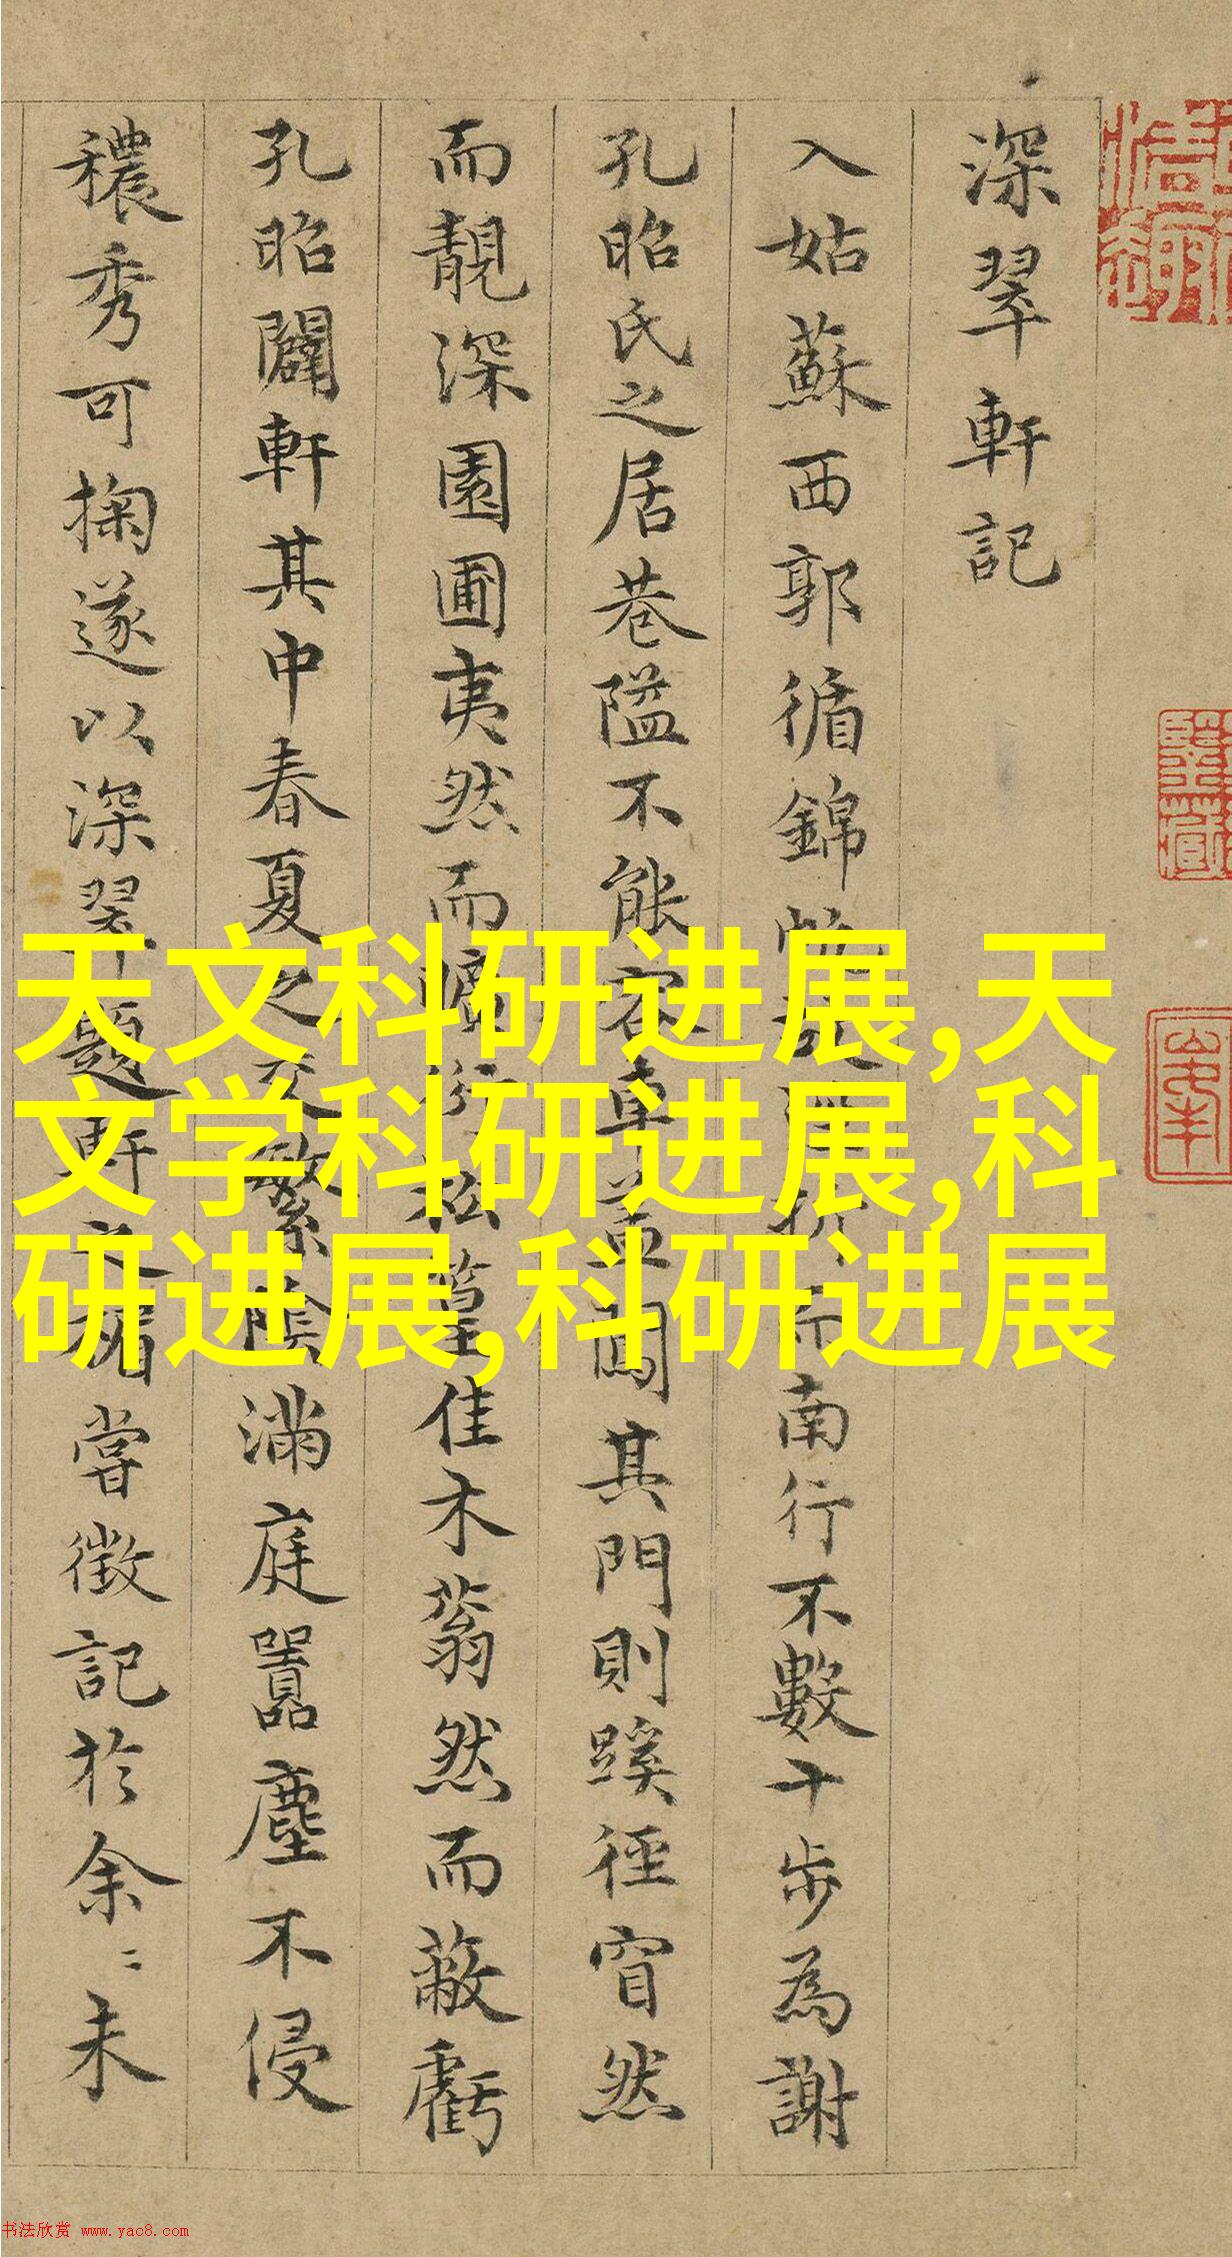 深翠軒記
入姑蘇西郭循錦而南行不數十步為謝
孔昭氏之居巷隘不能容車蓋闖其門則蹊徑窅然
而靚深園圃夷然而曠衍松篁佳木蓊然而蔽虧
孔昭闢軒其中春夏之交繁陰滿庭囂塵不侵
穠秀可掬遂以深翠題軒之楣嘗徵記於余〻未
天文科研进展,天
文学科研进展,科
研进展,科研进展
书法欣赏 www.yac8.com